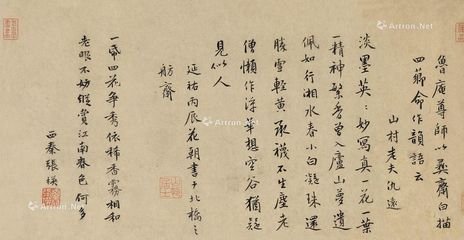 魯庵尊師以彝齋白描
四薌命作韻語云
山村老夫仇遠
淡墨英〻妙寫真一花一葉
一精神繁香曾入廬山夢遺
佩如行湘水春小白凝珠還
勝雪輕黃承襪不生塵老
僧懶作浮華想空谷猶疑
見似人
延祐丙辰花朝書于北橋之
舫齋
一卉四花爭秀依稀香霧相和
老眼不妨縱賞江南春色何多
西秦張楧
Artron.Net